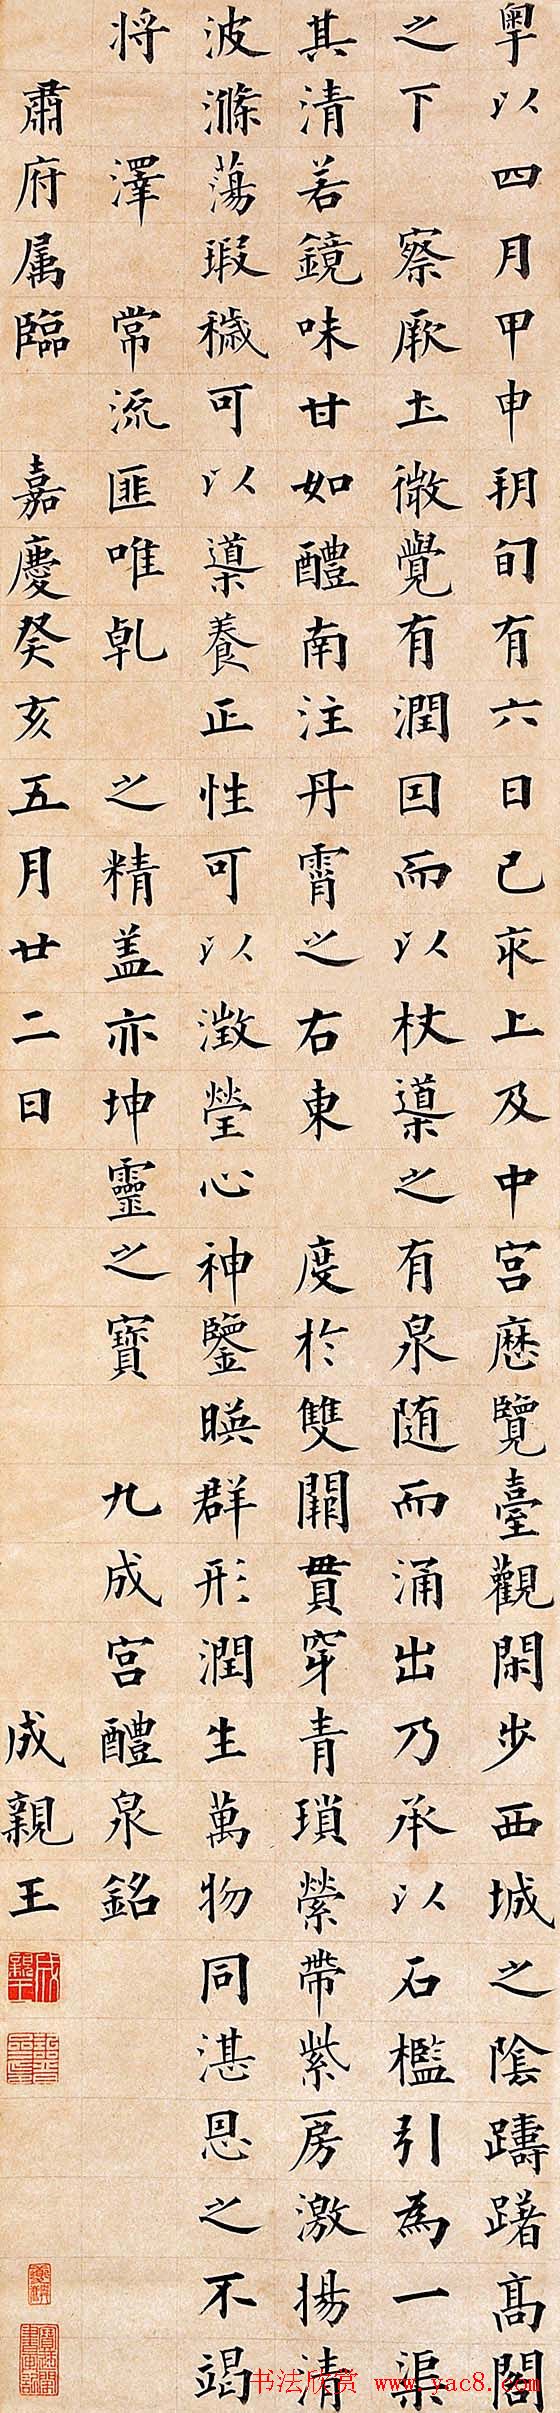 粤以四月甲申朔旬有六日己亥上及中宫歷覽臺觀閑步西城之陰躊躇高閣
之下 察厥土微覺有潤因而以杖導之有泉随而涌出乃承以石檻引為一渠
其清若鏡味甘如醴南注丹霄之右東 度於雙闕貫穿青瑣縈帶紫房激揚清
波滌蕩瑕穢可以導養正性可以澂瑩心神鑒暎群形潤生萬物同湛恩之不竭
将 澤 常流匪唯乹 之精盖亦坤靈之寶 九成宫醴泉銘
肅府属臨 嘉慶癸亥五月廿二日 成親王
成親王
书法欣赏 www.yac8.com